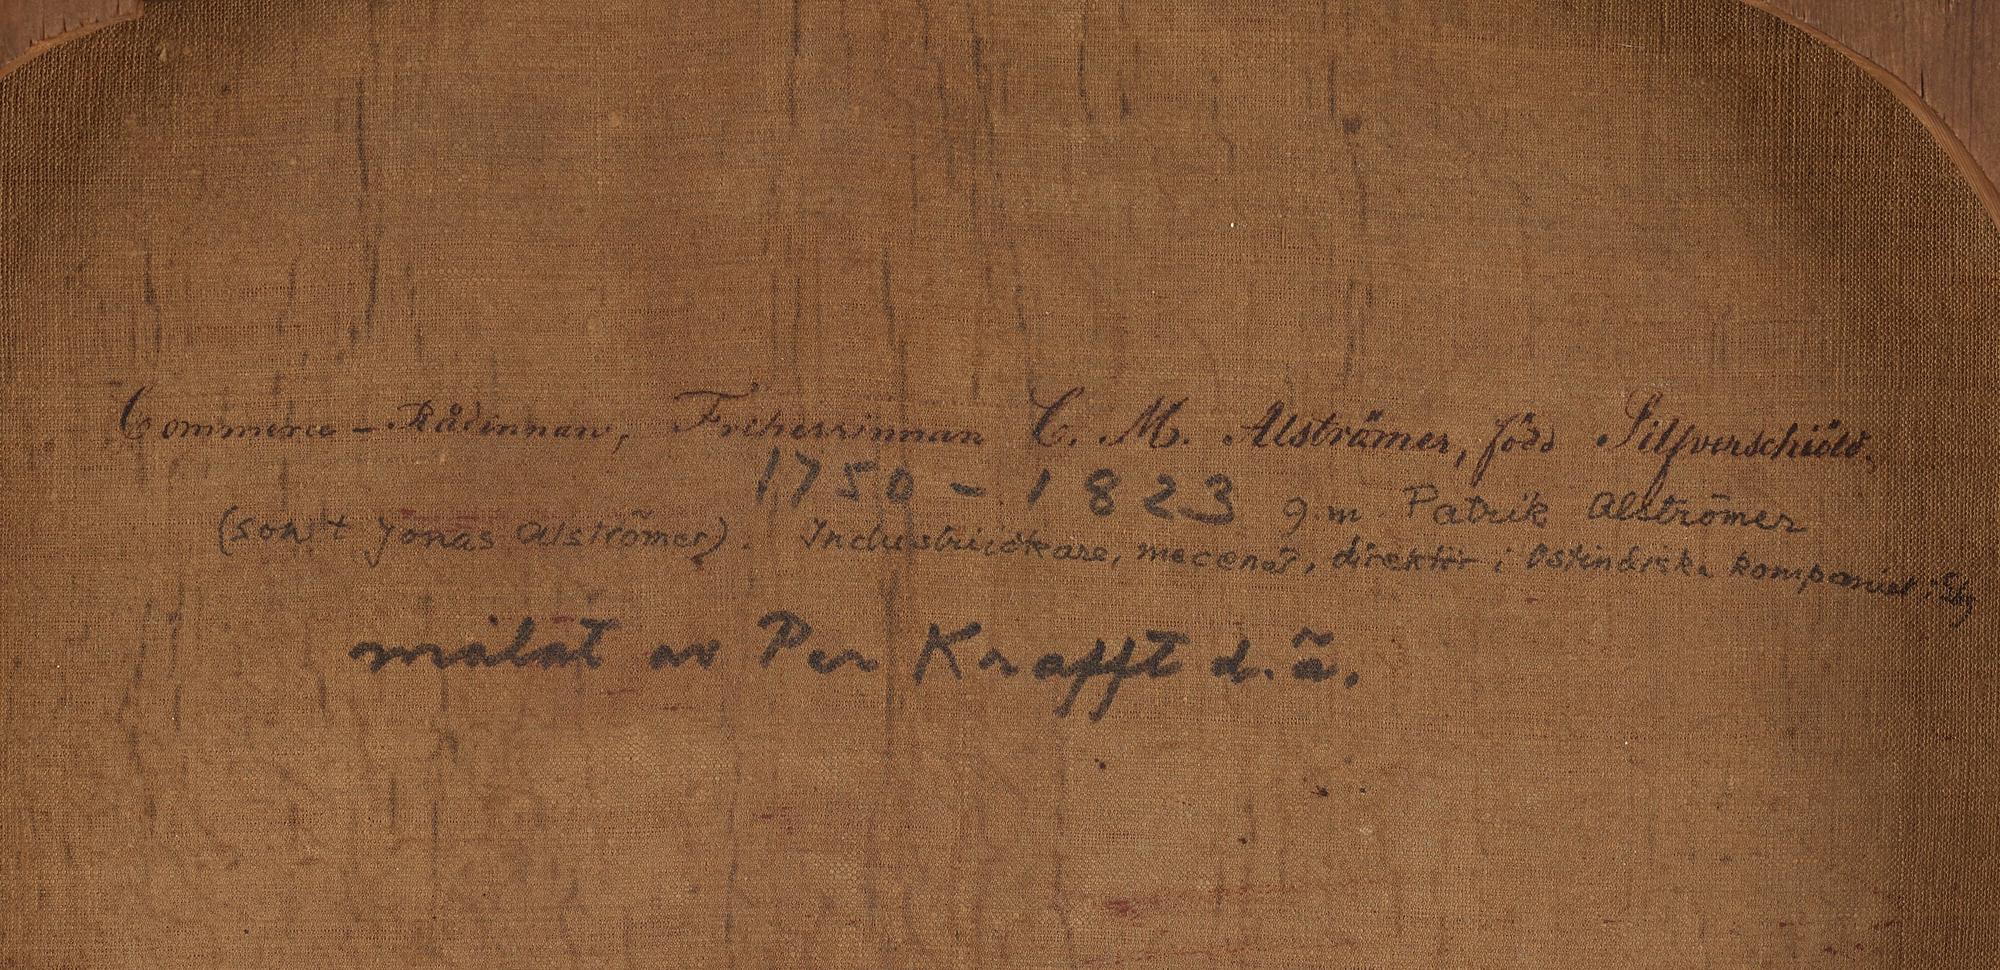 Commerce-Rådinnan, Friherrinnan C. M. Alströmer, född Silfverschiöld.
1750 - 1823 g.m. Patrik Alströmer
(son t Jonas Alströmer). Industriidkare, mecenat, direktör i Ostindiska kompaniet i
målat av Per Krafft d.ä.